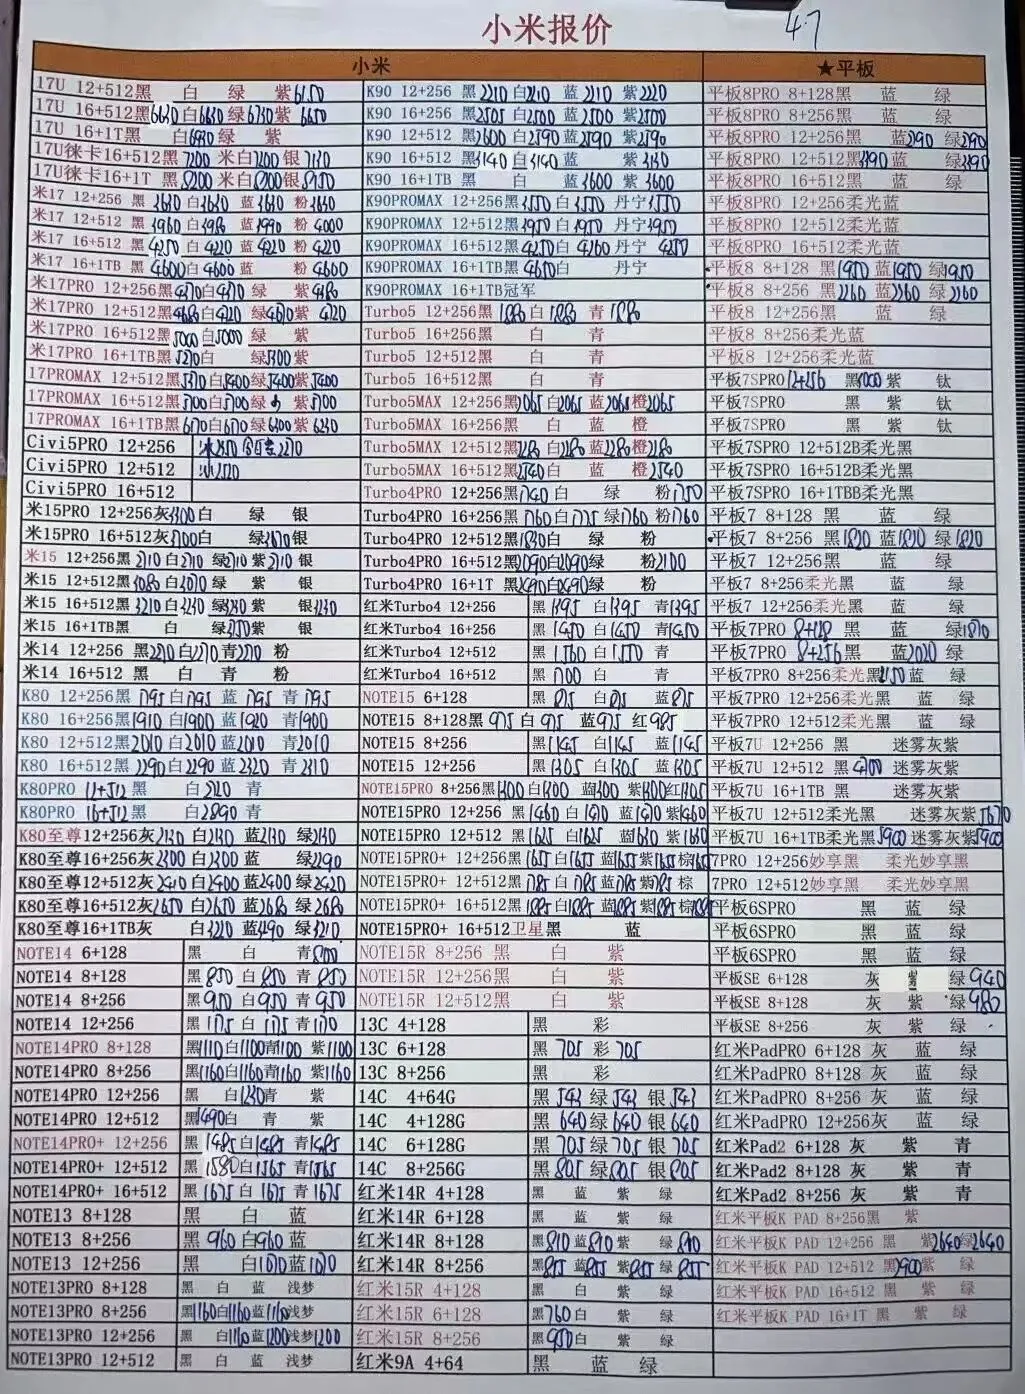 小米报价
4.7
小米
17U 12+512黑 白 绿 紫6150
17U 16+512黑6630 白6630 绿6730 紫6650
17U 16+1T黑 白6930 绿 紫
17U徕卡16+512黑7200 米白7200 银7130
17U徕卡16+1T 黑8200 米白8200 银8150
米17 12+256 黑3630 白3630 蓝3630 粉3630
米17 12+512 黑3960 白3980 蓝3990 粉4000
米17 16+512 黑4250 白4220 蓝4220 粉4220
米17 16+1TB 黑4600 白4600 蓝 粉4600
米17PRO 12+256黑4170 白4170 绿 紫4180
米17PRO 12+512黑4680 白4720 绿4670 紫4720
米17PRO 16+512黑5000 白5000 绿 紫
米17PRO 16+1TB黑5270 白 绿5300 紫
17PROMAX 12+512黑5370 白5400 绿5400 紫5400
17PROMAX 16+512黑5700 白5700 绿 紫5700
17PROMAX 16+1TB黑6170 白6170 绿6200 紫6230
Civi5PRO 12+256 冰2150 白 2270
Civi5PRO 12+512 冰2520
Civi5PRO 16+512
米15PRO 12+256灰3300 白 绿 银
米15PRO 16+512灰3700 白 绿3670 银
米15 12+256黑2710 白2710 绿2710 紫2710 银
米15 12+512黑3080 白3070 绿 紫 银
米15 16+512黑3210 白3230 绿3230 紫 银3230
米15 16+1TB黑 白 绿3350 紫 银
米14 12+256 黑2270 白2270 青2270 粉
米14 16+512 黑 白 青 粉
K80 12+256黑1795 白1795 蓝1795 青1795
K80 16+256黑1910 白1900 蓝1920 青1900
K80 12+512黑2010 白2010 蓝2010 青2010
K80 16+512黑2290 白2290 蓝2320 青2310
K80PRO 12+512 黑 白2520 青
K80PRO 16+512 黑 白2890 青
K80至尊12+256灰2130 白2130 蓝2130 绿2130
K80至尊16+256灰2300 白2300 蓝 绿2290
K80至尊12+512灰2410 白2400 蓝2400 绿2420
K80至尊16+512灰2650 白2650 蓝2680 绿2680
K80至尊16+1TB灰 白3210 蓝3190 绿3210
NOTE14 6+128 黑 白 青800
NOTE14 8+128 黑850 白850 青850
NOTE14 8+256 黑950 白950 青950
NOTE14 12+256 黑1175 白1175 青1170
NOTE14PRO 8+128 黑1110 白1100 青1100 紫1100
NOTE14PRO 8+256 黑1160 白1160 青1160 紫1160
NOTE14PRO 12+256 黑 白1230 青 紫
NOTE14PRO 12+512 黑1490 白 青 紫
NOTE14PRO+ 12+256 黑1485 白1485 青1485
NOTE14PRO+ 12+512 黑1580 白1565 青1565
NOTE14PRO+ 16+512 黑1675 白1675 青1675
NOTE13 8+128 黑 白 蓝
NOTE13 8+256 黑960 白960 蓝
NOTE13 12+256 黑 白1070 蓝1070
NOTE13PRO 8+128 黑 白 蓝 浅梦
NOTE13PRO 8+256 黑1160 白1160 蓝1160 浅梦
NOTE13PRO 12+256 黑 白1160 蓝1200 浅梦1200
NOTE13PRO 12+512 黑 白 蓝 浅梦
K90 12+256 黑2210 白2210 蓝2210 紫2220
K90 16+256 黑2505 白2500 蓝2500 紫2500
K90 12+512 黑2600 白2590 蓝2590 紫2590
K90 16+512 黑3140 白3140 蓝 紫3130
K90 16+1TB 黑 白 蓝3600 紫3600
K90PROMAX 12+256黑3550 白3550 丹宁3550
K90PROMAX 12+512黑3950 白3950 丹宁3950
K90PROMAX 16+512黑4250 白4260 丹宁4250
K90PROMAX 16+1TB黑4650 白 丹宁
K90PROMAX 16+1TB冠军
Turbo5 12+256黑1880 白1880 青1880
Turbo5 16+256黑 白 青
Turbo5 12+512黑 白 青
Turbo5 16+512黑 白 青
Turbo5MAX 12+256黑2065 白2065 蓝2065 橙2065
Turbo5MAX 16+256黑 白 蓝 橙
Turbo5MAX 12+512黑2280 白2280 蓝2280 橙2280
Turbo5MAX 16+512黑2540 白 蓝 橙2540
Turbo4PRO 12+256黑1740 白 绿 粉1750
Turbo4PRO 16+256黑1760 白1775 绿1760 粉1760
Turbo4PRO 12+512黑1830 白 绿 粉
Turbo4PRO 16+512黑2090 白2090 绿 粉2100
Turbo4PRO 16+1T 黑2490 白2490 绿 粉
红米Turbo4 12+256 黑1395 白1395 青1395
红米Turbo4 16+256 黑1450 白1450 青1450
红米Turbo4 12+512 黑1560 白1550 青
红米Turbo4 16+512 黑1700 白 青
NOTE15 6+128 黑875 白875 蓝875
NOTE15 8+128黑975 白975 蓝975 红985
NOTE15 8+256 黑1145 白1145 蓝1145
NOTE15 12+256 黑1305 白1305 蓝1305
NOTE15PRO 8+256黑1300 白1300 蓝1300 紫1300 红1305
NOTE15PRO 12+256 黑1460 白1470 蓝1470 紫1460
NOTE15PRO 12+512 黑1625 白1625 蓝1630 紫1630
NOTE15PRO+ 12+256黑1655 白1655 蓝1655 紫1655 棕1655
NOTE15PRO+ 12+512黑1785 白1785 蓝1785 紫1785 棕
NOTE15PRO+ 16+512黑1885 白1885 蓝1885 紫1885 棕1885
NOTE15PRO+ 16+512卫星黑 蓝
NOTE15R 8+256 黑 白 紫
NOTE15R 12+256黑 白 紫
NOTE15R 12+512黑 白 紫
13C 4+128 黑 彩
13C 6+128 黑705 彩705
13C 8+256 黑 彩
14C 4+64G 黑543 绿543 银543
14C 4+128G 黑640 绿640 银640
14C 6+128G 黑705 绿705 银705
14C 8+256G 黑805 绿805 银805
红米14R 4+128 黑 蓝 紫 绿
红米14R 6+128 黑 蓝 紫 绿
红米14R 8+128 黑810 蓝810 紫 绿810
红米14R 8+256 黑855 蓝855 紫855 绿855
红米15R 4+128 黑 白 紫 绿
红米15R 6+128 黑760 白 紫 绿
红米15R 8+256 黑950 白 紫 绿
红米9A 4+64 黑 蓝 绿
★平板
平板8PRO 8+128黑 蓝 绿
平板8PRO 8+256黑 蓝 绿
平板8PRO 12+256黑 蓝2790 绿2790
平板8PRO 12+512黑3190 蓝 绿3190
平板8PRO 16+512黑 蓝 绿
平板8PRO 12+256柔光蓝
平板8PRO 12+512柔光蓝
平板8PRO 16+512柔光蓝
平板8 8+128 黑1950 蓝1950 绿1950
平板8 8+256 黑2260 蓝2260 绿2260
平板8 12+256黑 蓝 绿
平板8 8+256柔光蓝
平板8 12+256柔光蓝
平板7SPRO 12+256 黑 紫 钛
平板7SPRO 黑 紫 钛
平板7SPRO 黑 紫 钛
平板7SPRO 12+512B柔光黑
平板7SPRO 16+512B柔光黑
平板7SPRO 16+1TBB柔光黑
平板7 8+128 黑 蓝 绿
平板7 8+256 黑1820 蓝1820 绿1820
平板7 12+256黑 蓝 绿
平板7 8+256柔光黑 蓝 绿
平板7 12+256柔光黑 蓝 绿
平板7PRO 8+128 黑 蓝 绿1870
平板7PRO 8+256 黑 蓝2020 绿
平板7PRO 8+256柔光黑2150 蓝 绿
平板7PRO 12+256柔光黑 蓝 绿
平板7PRO 12+512柔光黑 蓝 绿
平板7U 12+256 黑 迷雾灰紫
平板7U 12+512 黑4700 迷雾灰紫
平板7U 16+1TB 黑 迷雾灰紫
平板7U 12+512柔光黑 迷雾灰紫5670
平板7U 16+1TB柔光黑5900 迷雾灰紫5900
7PRO 12+256妙享黑 柔光妙享黑
7PRO 12+512妙享黑 柔光妙享黑
平板6SPRO 黑 蓝 绿
平板6SPRO 黑 蓝 绿
平板6SPRO 黑 蓝 绿
平板SE 6+128 灰 紫 绿940
平板SE 8+128 灰 紫 绿980
平板SE 8+256 灰 紫 绿
红米PadPRO 6+128 灰 蓝 绿
红米PadPRO 8+128 灰 蓝 绿
红米PadPRO 8+256 灰 蓝 绿
红米PadPRO 12+256灰 蓝 绿
红米Pad2 6+128 灰 紫 青
红米Pad2 8+128 灰 紫 青
红米Pad2 8+256 灰 紫 青
红米平板K PAD 8+256黑 紫
红米平板K PAD 12+256 黑 紫2640 绿2640
红米平板K PAD 12+512 黑2900 紫 绿
红米平板K PAD 16+512 黑 紫 绿
红米平板K PAD 16+1T 黑 紫 绿